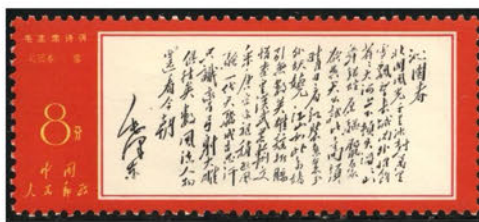 毛主席诗词
沁园春 雪
8分
中国
人民邮政
沁园春
北国风光千里冰封万里
雪飘望长城内外惟馀
莽莽大河上下顿失滔滔山
舞银蛇原驰腊象
欲与天公试比高须
晴日看红装素裹
分外妖娆江山如此多娇
引无数英雄竞折腰
惜秦皇汉武略输文
采唐宗宋祖稍逊风
骚一代天骄成吉思汗
只识弯弓射大雕
俱往矣数风流人物
还看今朝
毛泽东